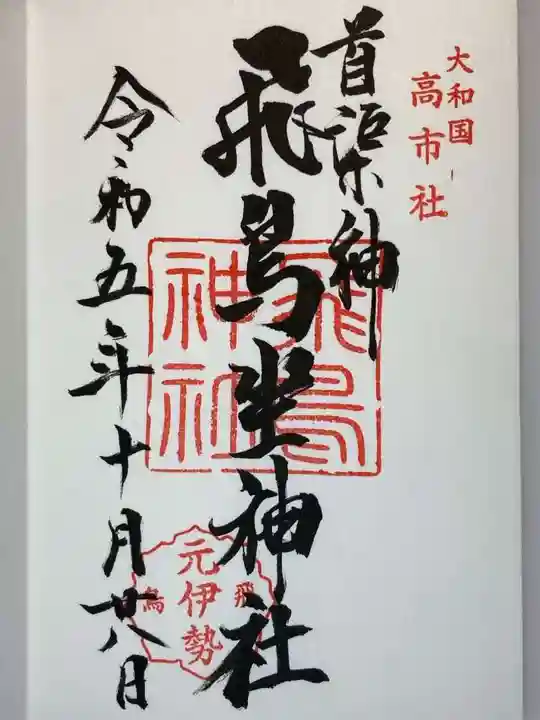 大和国
高市社
首渠神
飛鳥坐神社
飛鳥
神社
元伊勢
飛
鳥
令和五年十月廿八日